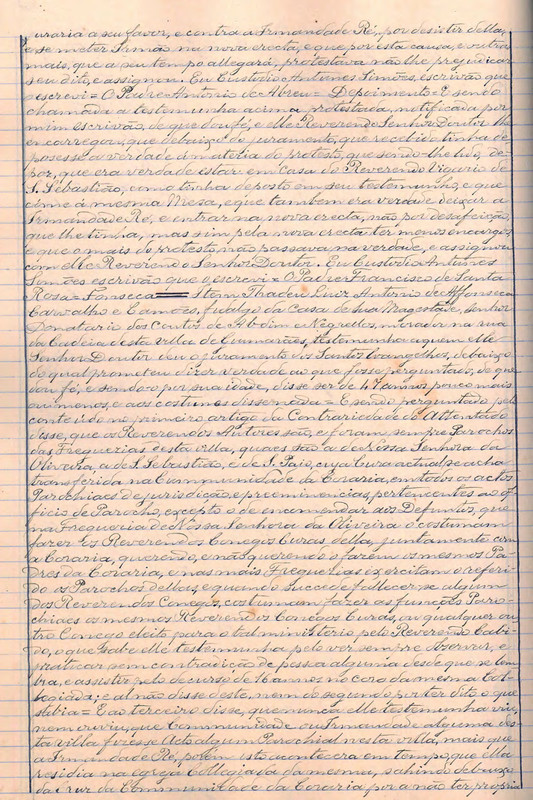 uraria a seu favor, e contra a Irmandade Ré, por desistir della,
e se meter Irmão na nova erecta, e que por esta causa, e outras
mais, que a seu tempo allegará, protestava não lhe prejudicar
seu dito, e assignou. Eu Custodio Antunes Simões, escrivão que
o escrevi = O Padre Antonio de Abreu = Depoimento = E sendo
chamada a testemunha acima protestada, notificada por
mim Escrivão, de que dou fé, e elle Reverendo Senhor Doutor lhe
encarregou, que debaixo do juramento, que recebido tinha de
pozesse a verdade á materia do protesto, que sendo-lhe lido, de-
poz, que era verdade estar em Casa do Reverendo Vigario de
S. Sebastião, como tinha deposto em seu testemunho, e que
á mesma Mesa, e que tambem era verdade deixar a
Irmandade Ré, e entrar na nova erecta, não por desafeição,
que lhe tinha, mas sim pela nova erecta ter menos encargos,
e que o mais do protesto, não passava na verdade, e assignou
com elle Reverendo Senhor Doutor. Eu Custodio Antunes
Simões escrivão que o escrevi = O Padre Francisco de Santa
Rosa = Fonseca = Item Thadeu Luiz Antonio de Affonseca
Carvalho e Camões, fidalgo da Casa de Sua Magestade, senhor
Donatario dos Coutos de Abadim e Negrellos, morador na rua
da Cadeia desta villa de Guimarães, testemunha a quem elle
Senhor Doutor deu o juramento dos Santos Evangelhos, debaixo
do qual prometeu dizer verdade ao que fosse perguntado, de que
dou fé, e sendo-o por sua idade, disse ser de 47 annos pouco mais
ou menos, e aos costumes disse nada = E sendo perguntado pelo
conteúdo no primeiro artigo da Contrariedade do Attentado
disse, que os Reverendos Autores são, e foram sempre Parochos
das Freguezias desta villa, quaes são a de Nossa Senhora da
Oliveira, a de S. Sebastião, e de S. Paio, cuja Cura actual se acha
transferida na Communidade da Coraria, em todos os actos
Parochiaes de jurisdicção, e preeminencias, pertencentes ao of-
ficio de Parocho, excepto o de encomendar aos Defuntos, que
na Freguezia de Nossa Senhora da Oliveira o costumam
fazer os Reverendos Conegos Curas della, juntamente com
a Coraria, querendo, e não querendo o fazem os mesmos Pa-
dres da Coraria, e nas mais Freguezias exercitam o referi-
do os Parochos dellas, e quando succede fallecer-se algum
dos Reverendos Conegos, costumam fazer as funcções Paro-
chiaes os mesmos Reverendos Conegos Curas, ou qualquer ou-
tro Conego eleito para o tal ministerio pelo Reverendo Cabi-
do, o que sabe elle testemunha pelo ver sempre observar, e
praticar sem contradição de pessoa alguma desde que se lem-
bra, e assistir pelo decurso de annos no coro da mesma Col-
legiada; e al não disse deste, nem do segundo por ter dito o que
sabia = E ao terceiro disse, que nunca elle testemunha viu,
nem ouviu, que Communidade ou Irmandade alguma des-
ta villa fizesse Acto algum Parochial nesta villa, mais que
a Irmandade Ré, porém isto acontecera em tempo, que ella
residia na egreja Collegiada da mesma, sahindo debaixo
da cruz da Communidade da Coraria por a não ter propria